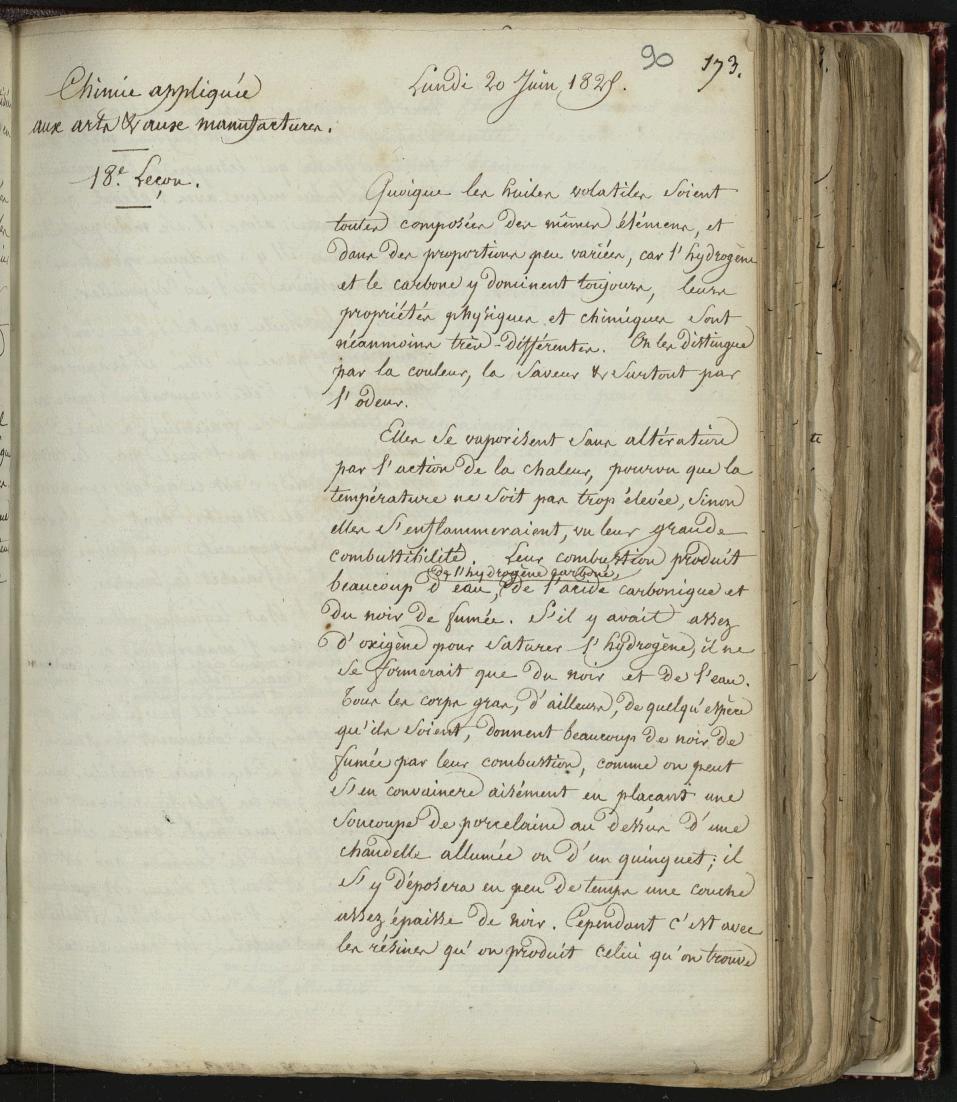 90 173.
Lundi 20 Juin 1825.
Chimie appliquée
aux arts & aux manufactures.
18.e Leçon.
Quoique les huiles volatiles soient
toutes composées des mêmes élémens, et
dans des proportions peu variées, car l'hydrogène
et le carbone y dominent toujours, leurs
propriétés physiques et chimiques sont
néanmoins très-différentes. On les distingue
par la couleur, la saveur & surtout par
l'odeur.
Elles se vaporisent sans altération
par l'action de la chaleur, pourvu que la
température ne soit pas trop élevée, sinon
elles s'enflammeraient, vu leur grande
combustibilité. Leur combustion produit
de l'hydrogène carboné,
beaucoup d'eau, de l'acide carbonique et
du noir de fumée. S'il y avait assez
d'oxigène pour saturer l'hydrogène, il ne
se formerait que du noir et de l'eau.
Tous les corps gras, d'ailleurs, de quelqu'espèce
qu'ils soient, donnent beaucoup de noir de
fumée par leur combustion, comme on peut
s'en convaincre aisément en plaçant une
soucoupe de porcelaine au dessus d'une
chandelle allumée ou d'un quinquet; il
s'y déposera en peu de temps une couche
assez épaisse de noir. Cependant c'est avec
les résines qu'on produit celui qu'on trouve